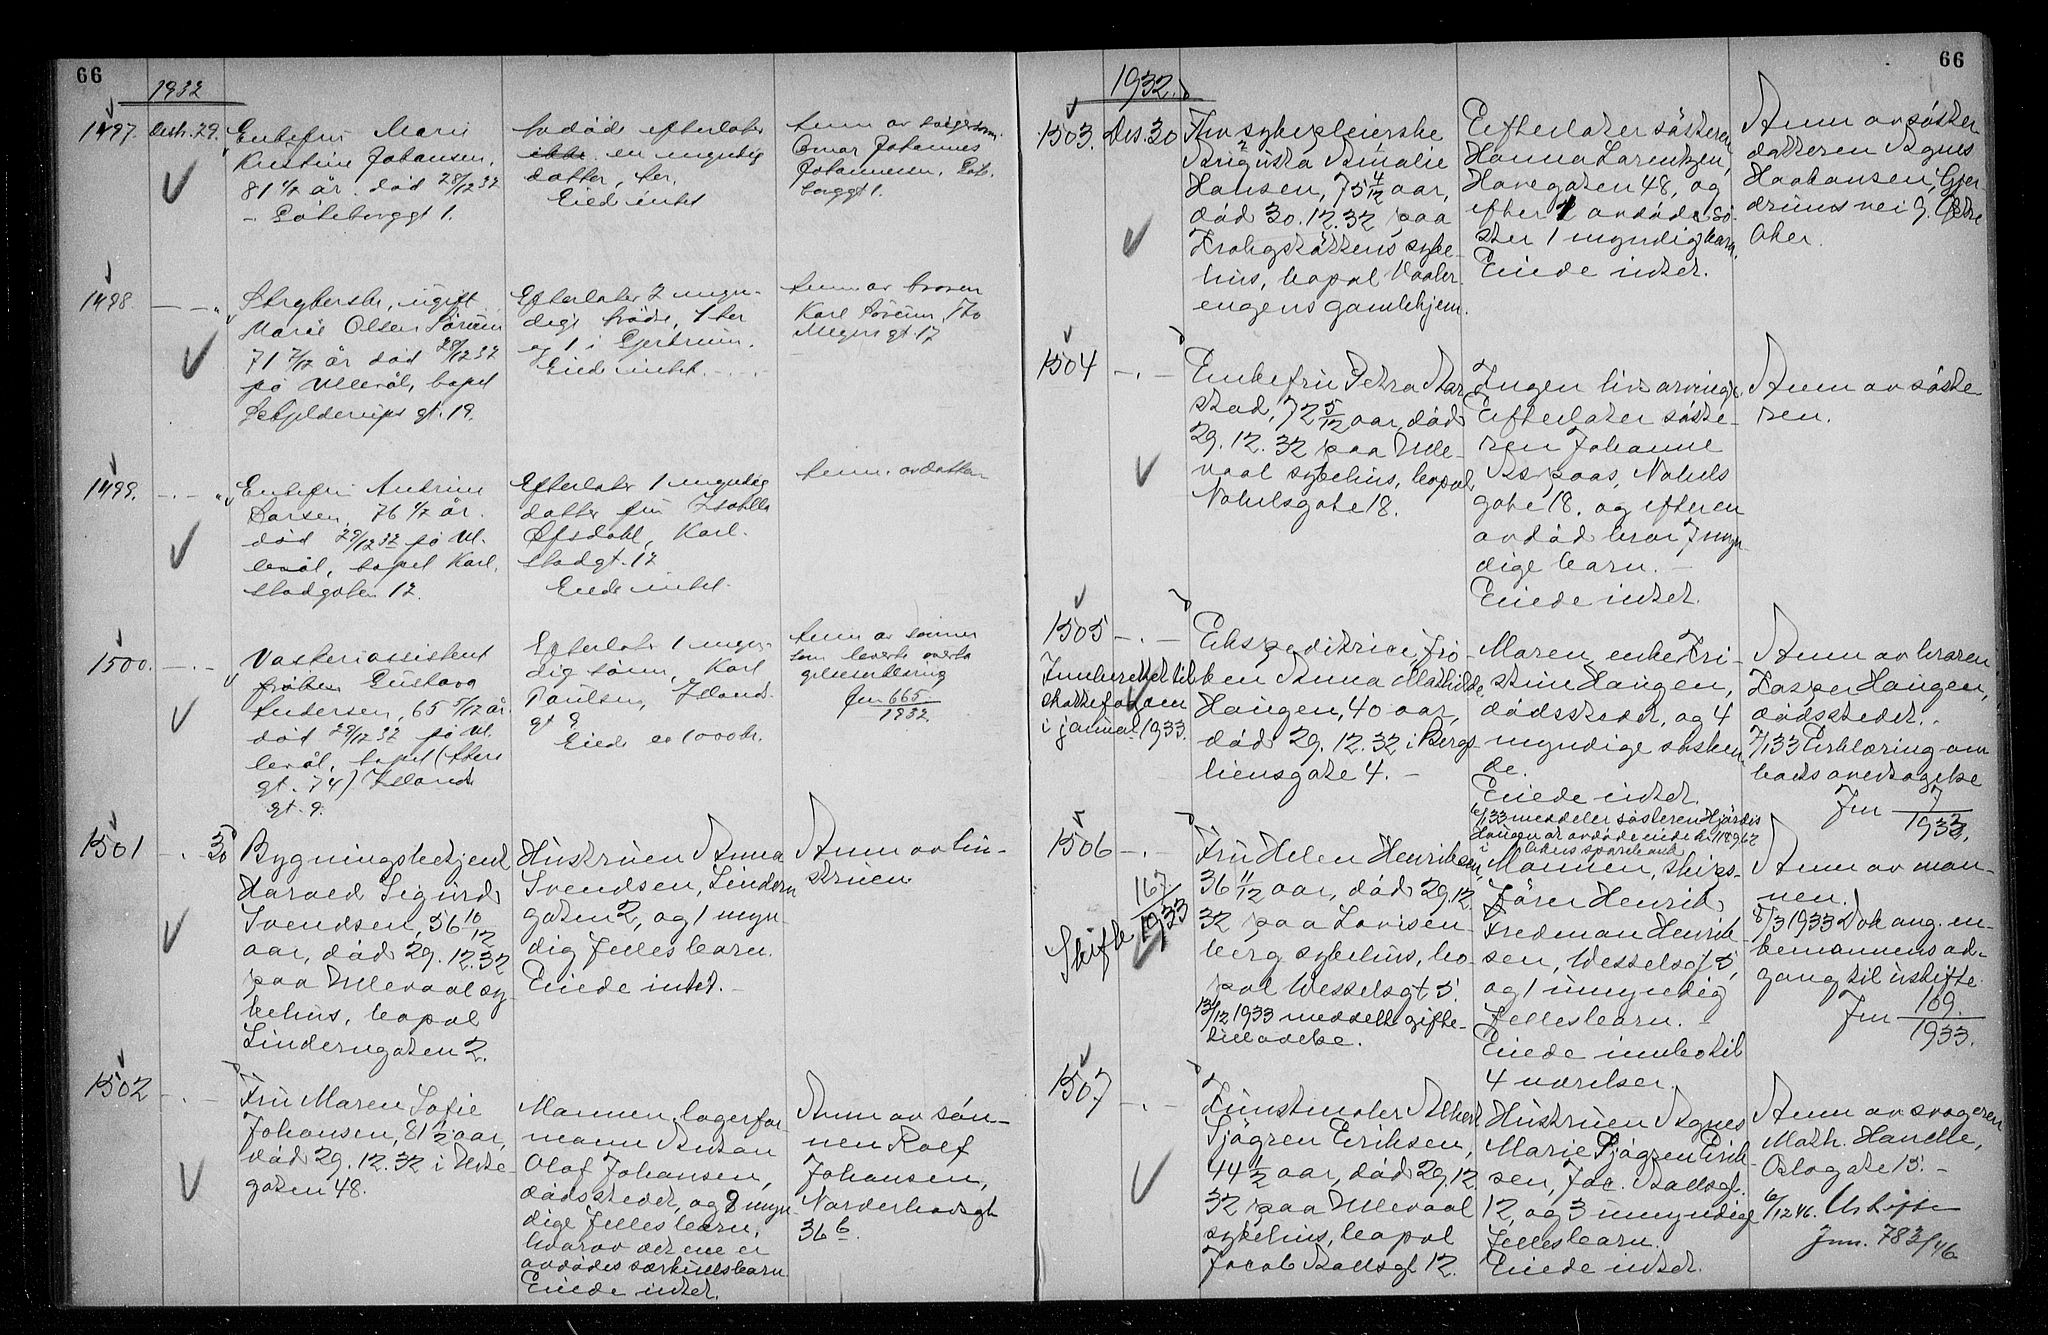 66
1932
1497. Desb. 29. Enkefru Marie
Kristine Johansen,
81 1/2 år. død 28/12 32
- Göteborggt 1.
Avdøde efterlater
ikke en myndig
datter, her.
Eied intet
Anm av svigersønn
Johannes
Johannesen, Göte-
borggt 1.
1498 — " — ugift
Marie Olsen Sørum
71 7/12 år død 28/12 32
på Ullevål, bopel
Schjelderups gt. 19.
Efterlater 2 myn-
dige brødre, 1 her
og 1 i Gjerdrum.
Eied intet.
Anm av broren
Karl Sørum, Th
Meyers gt. 17
1499. — " — Enkefru Andrine
Larsen, 76 1/2 år.
død 29/12 32 på Ul-
levål, bopel Karl-
stadgaten 12.
Efterlater 1 myndig
datter fru
Karl-
stadgt. 12
Eiede intet.
Anm. av datter
1500. — " — Vaskeriassistent
frøken Gustava
Andersen, 65 5/12 år.
død 29/12 32 på Ul-
levål, bopel (
gt. 74)
gt. 9.
Efterlater 1 myn-
dig sønn, Karl
Paulsen,
gt 9
Eied ca 1000 kr.
Anm av sønnen
som leverte overta-
gelseserklæring
Jnr 665/1932
1501 — " — 30 Bygningsbetjent
Harald Sigurd
Svendsen, 56 10/12
aar, død 29.12.32
paa Ullevaal sy-
kehus, bopæl
Linderngaten 2.
Hustruen Anna
Svendsen, Lindern-
gaten 2, og 1 myn-
dig fellesbarn.
Eiede intet. -
Anm av hu-
struen
1502 — " — Fru Maren Sofie
Johansen, 81 1/2 aar,
død 29.12.32 i Urte-
gaten 48.
Mannen, lagerfor-
mann Anton
Olaf Johansen,
dødsstedet, og 8 myn-
dige fellesbarn,
hvorav det ene er
avdødes særkullsbarn
Eiede intet.
Anm av søn-
nen Rolf
Johansen,
Norderhovsgt
36 b.
66
1932.
1503. Des. 30 Fhv sykepleierske
Augusta Amalie
Hansen, 75 4/12 aar,
død 30.12.32 paa
Krohgstøttens syke-
hus, bopæl Vaaler-
engens gamlehjem.
Efterlater søsteren
Hanna Larentzen,
Havegaten 48, og
efter 1 avdød sø-
ster 1 myndig barn.
Eiede intet.
Anm av søster-
datteren Agnes
Haakansen, Gjer-
drums vei 9. Østre
Aker.
1504 — " — Enkefru Petra Aar-
stad, 72 5/12 aar, død
29.12.32 paa Ulle-
vaal sykehus, bopæl
Nobelsgate 18.
Ingen livsarvinger.
Efterlater søste-
ren Johanne
Aspaas, Nobels
gate 18, og efter en
avdød bror 7 myn-
dige barn. -
Eiede intet.
Anm av søste-
ren.
1505 — " — Ekspeditrice, frø-
ken Anna Mathilde
Haugen, 40 aar,
død 29.12.32 i Bergs-
liensgate 4. -
Innberettet til
skattefogden
i januar 1933.
Moren, enke Kri-
stine Haugen,
dødsstedet, og 4
myndige søsken-
de.
Eiede intet.
6/1 33 meddeler søsteren Hjørdis
Haugen at avdøde eiede kr 1189,62
i Akers sparebank
Anm av broren
Kasper Haugen,
dødsstedet.
7/1 33 Erklæring om
boets overtagelse
Jnr 7/1933.
1506 — " — Fru Helen Henriksen,
36 11/12 aar, død 29.12.
32 paa Lovisen-
berg sykehus, bo-
pæl Wesselsgt 5.
13/12 1933 meddelt gifte-
tillatelse.
Skifte 167/1933
Mannen, skips-
fører Henrik
Fredman Henrik-
sen, Wesselsgt 5,
og 1 umyndig
fellesbarn. -
Eiede innbo til
4 værelser.
Anm av man-
nen.
8/3 1933 Dok ang. en-
kemannens ad-
gang til uskifte
Jnr 169/1933.
1507 — " — Kunstmaler Albert
Sjögren Eriksen,
44 1/2 aar, død 29.12.
32 paa Ullevaal
sykehus, bopæl
Jacob Aallsgt 12.
Hustruen Agnes
Marie Sjögren Erik-
sen, Jac. Aallsgt.
12, og 3 umyndige
fellesbarn.
Eiede intet.
Anm av svogeren
Math. Handle,
Oslogate 15. -
6/12 46. Uskifte
Jnr. 783/46